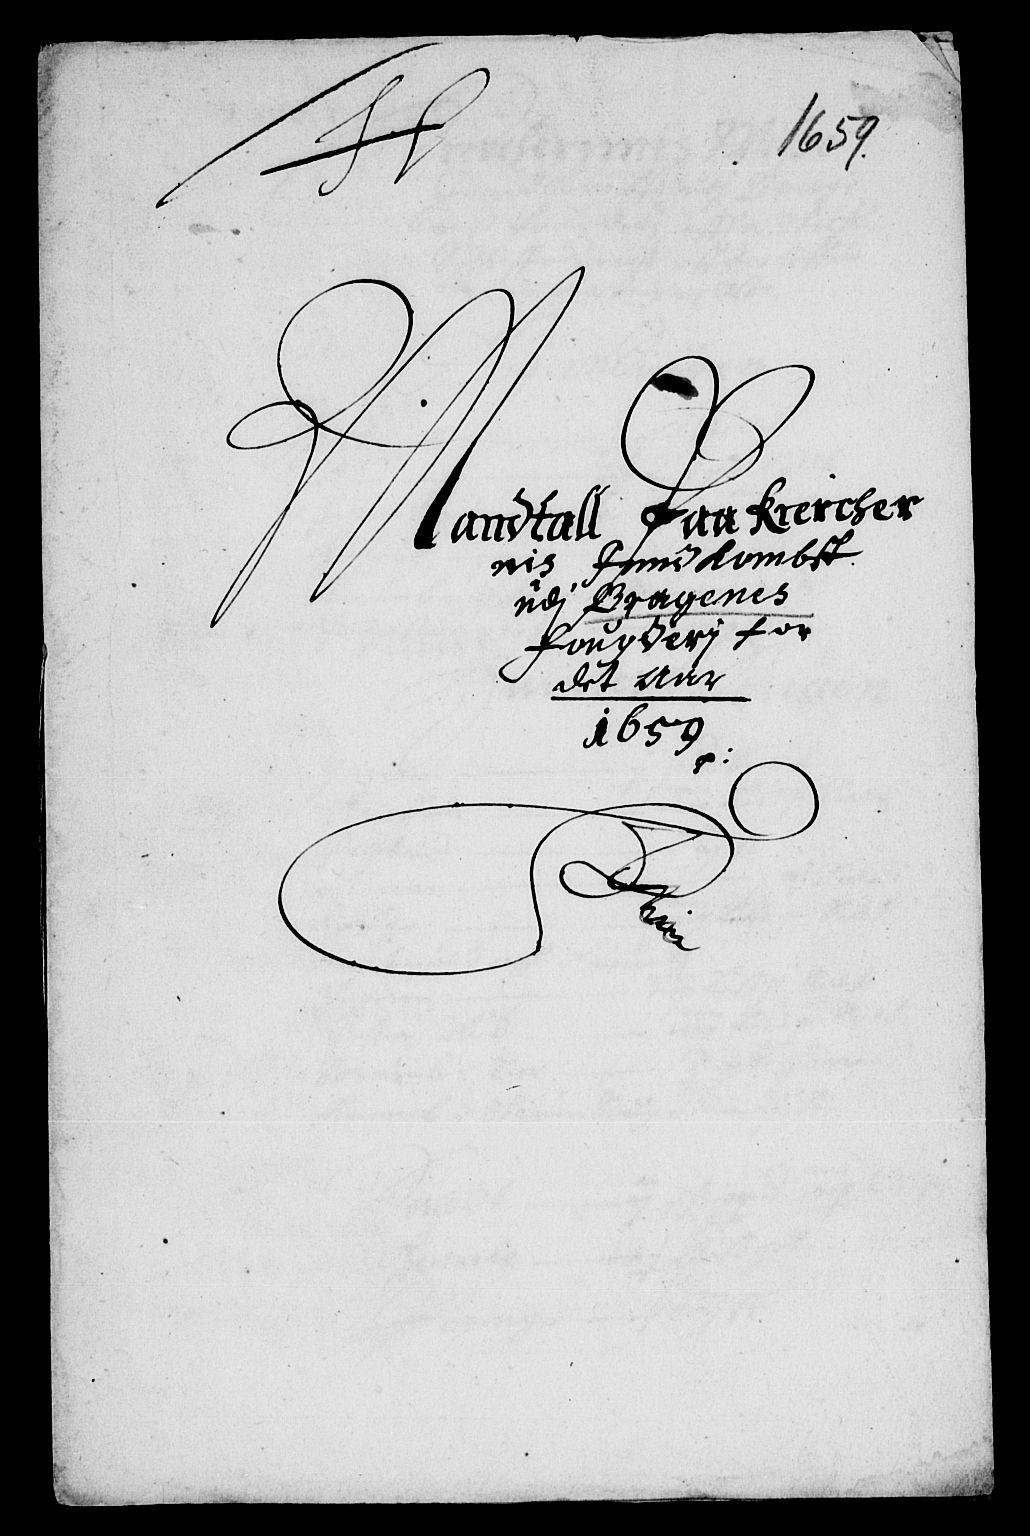 1659.
Mandtall Paa Kiercher
nis Inndkombst
udj Bragenes
fougderj for
det Aar
1659